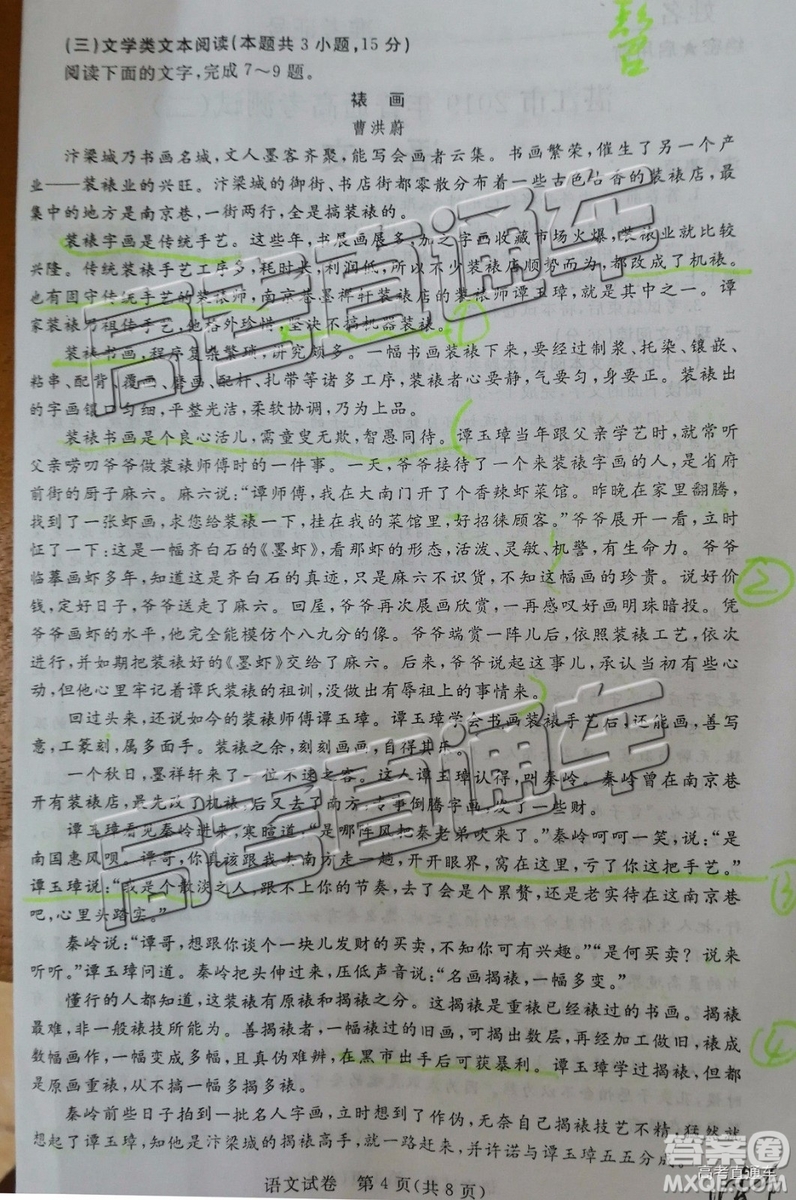 (三)文学类文本阅读(本题共3小题,15分)
阅读下面的文字,完成7～9题。
裱 画
曹洪蔚
汴梁城乃书画名城,文人墨客齐聚,能写会画者云集。书画繁荣,催生了另一个产
业——装裱业的兴旺。汴梁城的御街、书店街都零散分布着一些古色古香的装裱店,最
集中的地方是南京巷,一街两行,全是搞装裱的。
装裱字画是传统手艺。这些年,书展画展多,加之字画收藏市场火爆,装裱业就比较
兴隆。传统装裱手艺工序多,耗时长,利润低,所以不少装裱店顺势而为,都改成了机裱。
也有固守传统手艺的装裱师,南京巷墨祥轩装裱店的装裱师谭玉璋,就是其中之一。谭
家装裱乃祖传手艺,他格外珍惜,坚决不搞机器装裱。
装裱书画,程序复杂繁琐,讲究颇多。一幅书画装裱下来,要经过制浆、托染、镶嵌、
粘串、配背、覆画、磨画、配杆、扎带等诸多工序,装裱者心要静,气要匀,身要正。装裱出
的字画镶 匀细,平整光洁,柔软协调,乃为上品。
装裱书画是个良心活儿,需童叟无欺,智愚同待。谭玉璋当年跟父亲学艺时,就常听
父亲唠叨爷爷做装裱师傅时的一件事。一天,爷爷接待了一个来装裱字画的人,是省府
前街的厨子麻六。麻六说:“谭师傅,我在大南门开了个香辣虾菜馆。昨晚在家里翻腾,
找到了一张虾画,求您给装裱一下,挂在我的菜馆里,好招徕顾客。”爷爷展开一看,立时
怔了一下:这是一幅齐白石的《墨虾》,看那虾的形态,活泼、灵敏、机警,有生命力。爷爷
临摹画虾多年,知道这是齐白石的真迹,只是麻六不识货,不知这幅画的珍贵。说好价
钱,定好日子,爷爷送走了麻六。回屋,爷爷再次展画欣赏,一再感叹好画明珠暗投。凭
爷爷画虾的水平,他完全能模仿个八九分的像。爷爷端赏一阵儿后,依照装裱工艺,依次
进行,并如期把装裱好的《墨虾》交给了麻六。后来,爷爷说起这事儿,承认当初有些心
动,但他心里牢记着谭氏装裱的祖训,没做出有辱祖上的事情来。
回过头来,还说如今的装裱师傅谭玉璋。谭玉璋学会书画装裱手艺后,还能画,善写
意,工篆刻,属多面手。装裱之余,刻刻画画,自得其乐。
一个秋日,墨祥轩来了一位不速之客。这人谭玉璋认得,叫秦岭。秦岭曾在南京巷
开有装裱店,最先改了机裱,后又去了南方,专事倒腾字画,攻了一些财。
谭玉璋看见秦岭进来,寒暄道:“是哪阵风把秦老弟吹来了。”秦岭呵呵一笑,说:“是
南国惠风呗。谭哥,你真该跟我去南方走一趟,开开眼界,窝在这里,亏了你这把手艺。”
谭玉璋说:“我是个散淡之人,跟不上你的节奏,去了会是个累赘,还是老实待在这南京巷
吧,心里头踏实。”
秦岭说:“谭哥,想跟你谈个一块儿发财的买卖,不知你可有兴趣。”“是何买卖？说来
听听。”谭玉璋问道。秦岭把头伸过来,压低声音说:“名画揭裱,一幅多变。”
懂行的人都知道,这装裱有原裱和揭裱之分。这揭裱是重裱已经裱过的书画。揭裱
最难,非一般裱技所能为。善揭裱者,一幅裱过的旧画,可揭出数层,再经加工做旧,裱成
数幅画作,一幅变成多幅,且真伪难辨,在黑市出手后可获暴利。谭玉璋学过揭裱,但都
是原画重裱,从不搞一幅多揭多裱。
秦岭前些日子拍到一批名人字画,立时想到了作伪,无奈自己揭裱技艺不精,猛然就
想起了谭玉璋,知他是汴梁城的揭裱高手,就一路赶来,并许诺与谭玉璋五五分成。
语文试卷 第4页(共8页)
高考直通车
高考直通车
高考直通车
答案圈
MXQE.COM
①
②
③
④